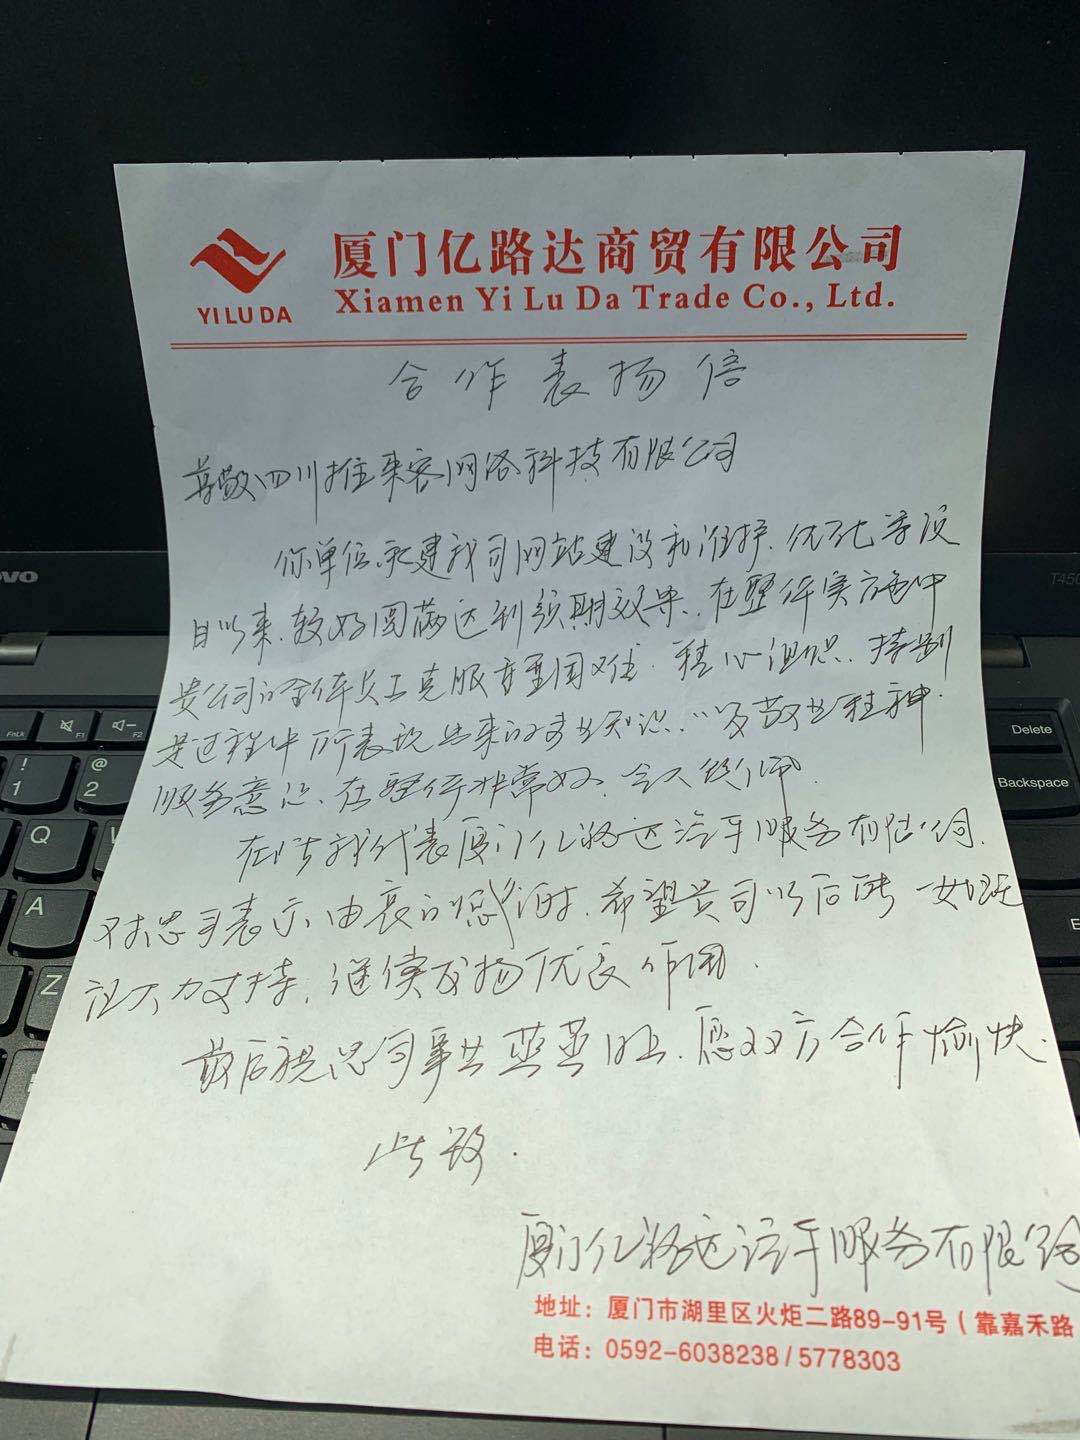 YI LU DA
厦门亿路达商贸有限公司
Xiamen Yi Lu Da Trade Co., Ltd.
合作表扬信
尊敬四川推来客网络科技有限公司
你单位承建我司网站建设和维护、优化等没
日以来、较好圆满达到预期效果、在整体实施中
贵公司的全体员工克服重重困难、精心组织、特别
是过程中所表现出来的专业知识、以及敬业精神、
服务意识、在整体非常好、令人钦佩.
在此我代表厦门亿路达汽车服务有限公司、
对您司表示由衷的感谢、希望贵司以后一如既
往大力支持、继续发扬优良作风.
最后祝您司事业蒸蒸日上、愿双方合作愉快.
此致.
厦门亿路达汽车服务有限公司
地址：厦门市湖里区火炬二路89-91号（靠嘉禾路
电话：0592-6038238/5778303
ovo
T450
FnLk
F1
F2
Delete
!
1
@
2
Backspace
Q
A
Z